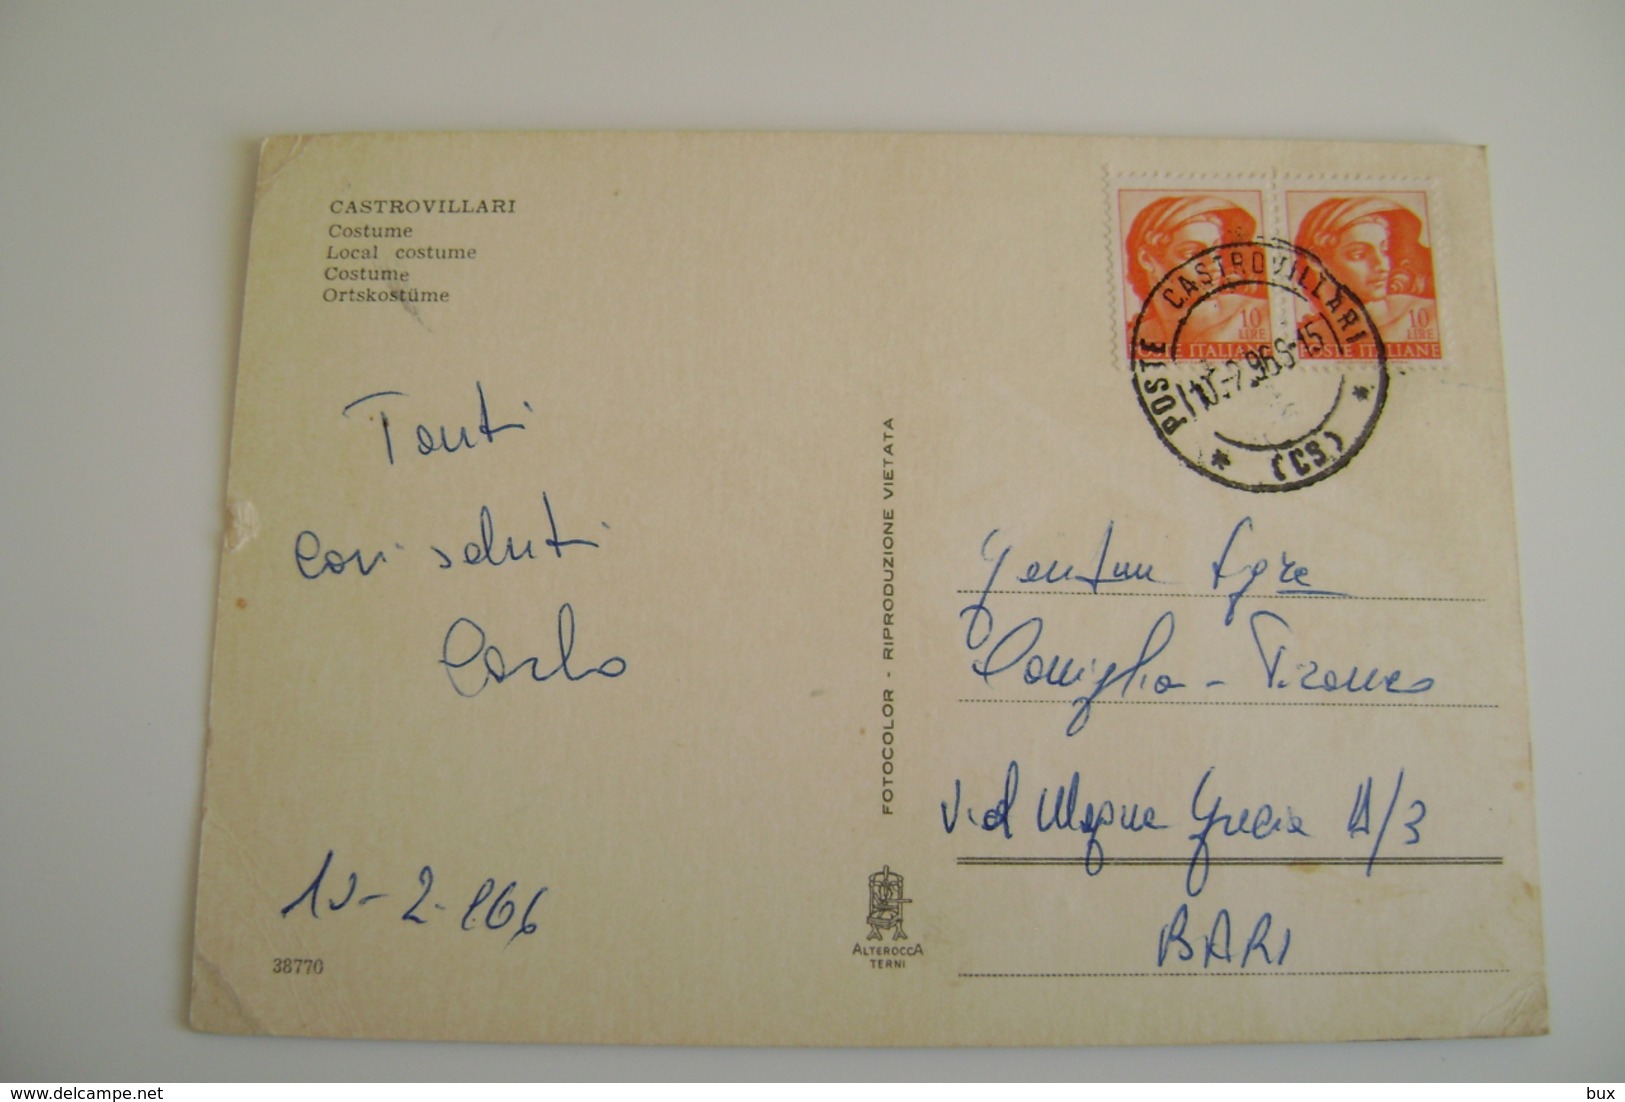 CASTROVILLARI
Costume
Local costume
Costume
Ortskostüme
Tanti
cari saluti
Carlo
10-2-966
38770
FOTOCOLOR - RIPRODUZIONE VIETATA
ALTEROCCA
TERNI
10 LIRE
POSTE ITALIANE
10 LIRE
POSTE ITALIANE
POSTE CASTROVILLARI
(CS)
Famiglia -
Magna Grecia /3
BARI
www.delcampe.net
bux